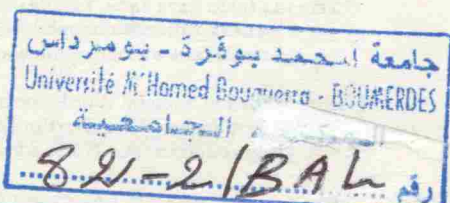 جامعة امحمد بوقرة - بومرداس
Université M'Hamed Bouguerra - BOUMERDES
الجامعية
رقم 82-2/BAL